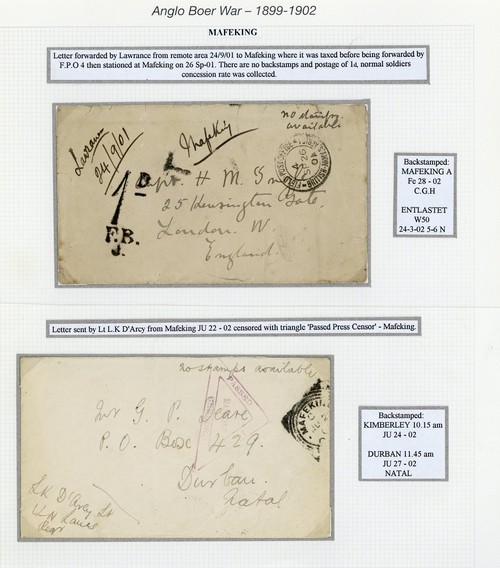 Anglo Boer War – 1899-1902
MAFEKING
Letter forwarded by Lawrance from remote area 24/9/01 to Mafeking where it was taxed before being forwarded by
F.P.O 4 then stationed at Mafeking on 26 Sp-01. There are no backstamps and postage of 1d, normal soldiers
concession rate was collected.
no stamps
available
Lawrance
24/9/01
Mafeking
1D
F.B.
J.
Capt. H M.
25 Kensington Gate.
London. W.
England.
FIELD POST OFFICE BRITISH ARMY
SP 26
01
Backstamped:
MAFEKING A
Fe 28 - 02
C.G.H
ENTLASTET
W50
24-3-02 5-6 N
Letter sent by Lt L.K D'Arcy from Mafeking JU 22 - 02 censored with triangle 'Passed Press Censor' - Mafeking.
no stamps available
PASSED
MAFEKING
Mr G. P. Deare
P. O. Box 429.
Durban.
Natal
L K D'Arcy Lt
Regt
Backstamped:
KIMBERLEY 10.15 am
JU 24 - 02
DURBAN 11.45 am
JU 27 - 02
NATAL